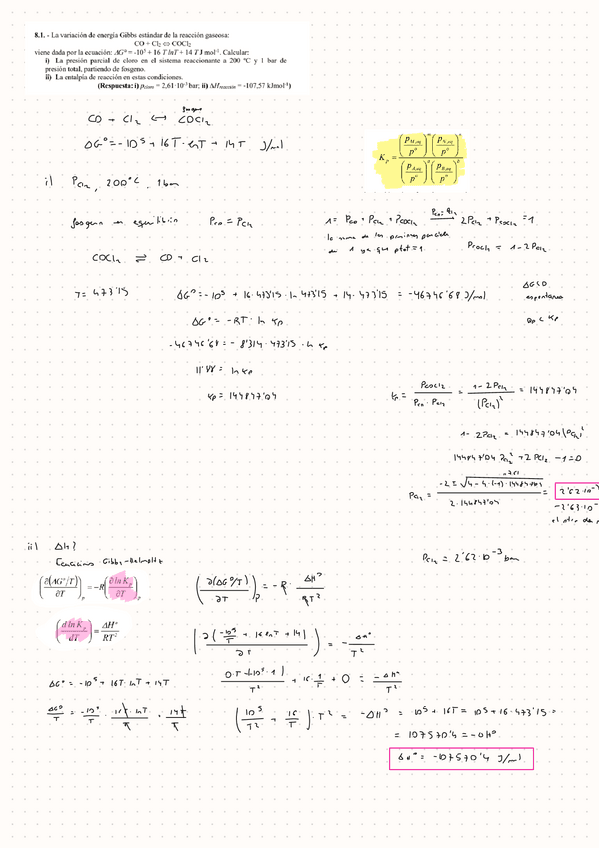 8.1. - La variación de energía Gibbs estándar de la reacción gaseosa:
CO + Cl₂ ⇔ COCl₂
viene dada por la ecuación: ΔG° = -10⁵ + 16 T lnT + 14 T J mol⁻¹. Calcular:
i) La presión parcial de cloro en el sistema reaccionante a 200 °C y 1 bar de
presión total, partiendo de fosgeno.
ii) La entalpía de reacción en estas condiciones.
(Respuesta: i) p_cloro = 2,61·10⁻³ bar; ii) ΔH_reacción = -107,57 kJmol⁻¹)
CO + Cl₂ ⇌ COCl₂
ΔG° = -10⁵ + 16T·lnT + 14T J/mol
K_p = (p_M,eq / p°)^m (p_N,eq / p°)^n / (p_A,eq / p°)^a (p_B,eq / p°)^b
i) P_Cl₂, 200°C, 1 bar
fosgeno en equilibrio P_CO = P_Cl₂
1 = P_CO + P_Cl₂ + P_COCl₂ → 2P_Cl₂ + P_COCl₂ = 1
la suma de las presiones parciales
da 1 ya que ptot = 1.
P_COCl₂ = 1 - 2P_Cl₂
COCl₂ ⇌ CO + Cl₂
T = 473'15
ΔG° = -10⁵ + 16·473'15·ln 473'15 + 14·473'15 = -46746'68 J/mol
ΔG<0
espontáneo
Qp < Kp
ΔG° = -RT·ln Kp
-46746'68 = -8'314·473'15·ln Kp
11'88 = ln Kp
Kp = 144847'04
Kp = P_COCl₂ / P_CO·P_Cl₂ = 1-2P_Cl₂ / (P_Cl₂)² = 144847'04
1-2P_Cl₂ = 144847'04 (P_Cl₂)²
144847'04 P_Cl₂² + 2P_Cl₂ - 1 = 0
P_Cl₂ = -2 ± √4-4·(-1)·144847'04 / 2·144847'04 = 2'62·10⁻³
-2'63·10
P_Cl₂ = 2'62·10⁻³ bar
ii) ΔH?
Ecuaciones Gibbs-Helmholtz
(∂(ΔG°/T) / ∂T)_P = -R (∂ ln K_p / ∂T)_P
(∂(ΔG°/T) / ∂T)_P = -R · ΔH° / RT²
(d ln K_p / dT) = ΔH° / RT²
(∂(-10⁵/T + 16 lnT + 14) / ∂T) = - ΔH° / T²
ΔG° = -10⁵ + 16T·lnT + 14T
0·T-(-10⁵·1) / T² + 16·1/T + 0 = -ΔH° / T²
ΔG°/T = -10⁵/T + 16T·lnT/T + 14T/T
(10⁵/T² + 16/T)·T² = -ΔH° = 10⁵ + 16T = 10⁵ + 16·473'15 =
= 107570'4 = -ΔH°
ΔH° = -107570'4 J/mol